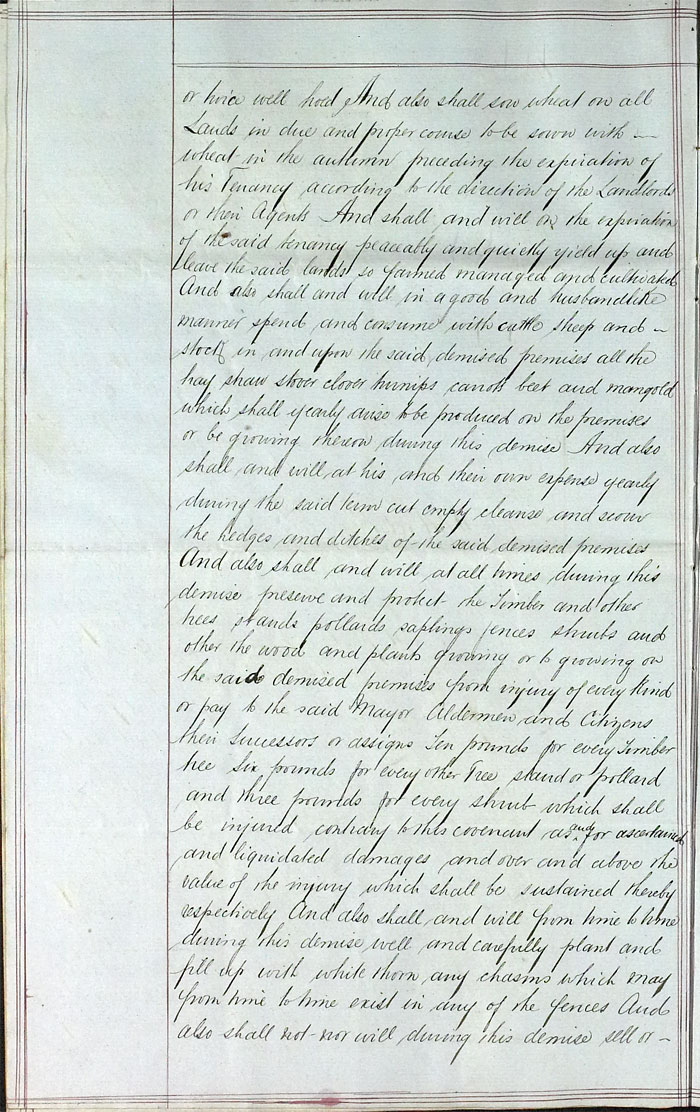 or twice well hoed And also shall sow wheat on all
Lands in due and proper course to be sown with —
wheat in the autumn preceding the expiration of
his Tenancy according to the direction of the Landlords
or their Agents And shall and will on the expiration
of the said tenancy peaceably and quietly yield up and
leave the said lands so farmed managed and cultivated
And also shall and will in a good and husbandlike
manner spend and consume with cattle sheep and —
stock in and upon the said demised premises all the
hay straw stover clover turnips carrots beet and mangold
which shall yearly arise to be produced on the premises
or be growing thereon during this demise And also
shall and will at his and their own expense yearly
during the said term cut empty cleanse and scour
the hedges and ditches of the said demised premises
And also shall and will at all times during this
demise preserve and protect the Timber and other
trees stands pollards saplings fences shrubs and
other the wood and plants growing or to growing on
the said demised premises from injury of every kind
or pay to the said Mayor Aldermen and Citizens
their Successors or assigns Ten pounds for every Timber
tree Six pounds for every other Tree stand or pollard
and three pounds for every shrub which shall
be injured contrary to this covenant as and for ascertained
and liquidated damages and over and above the
value of the injury which shall be sustained thereby
respectively And also shall and will from time to time
during this demise well and carefully plant and
fill up with white thorn any chasms which may
from time to time exist in any of the fences And
also shall not nor will during this demise sell or —